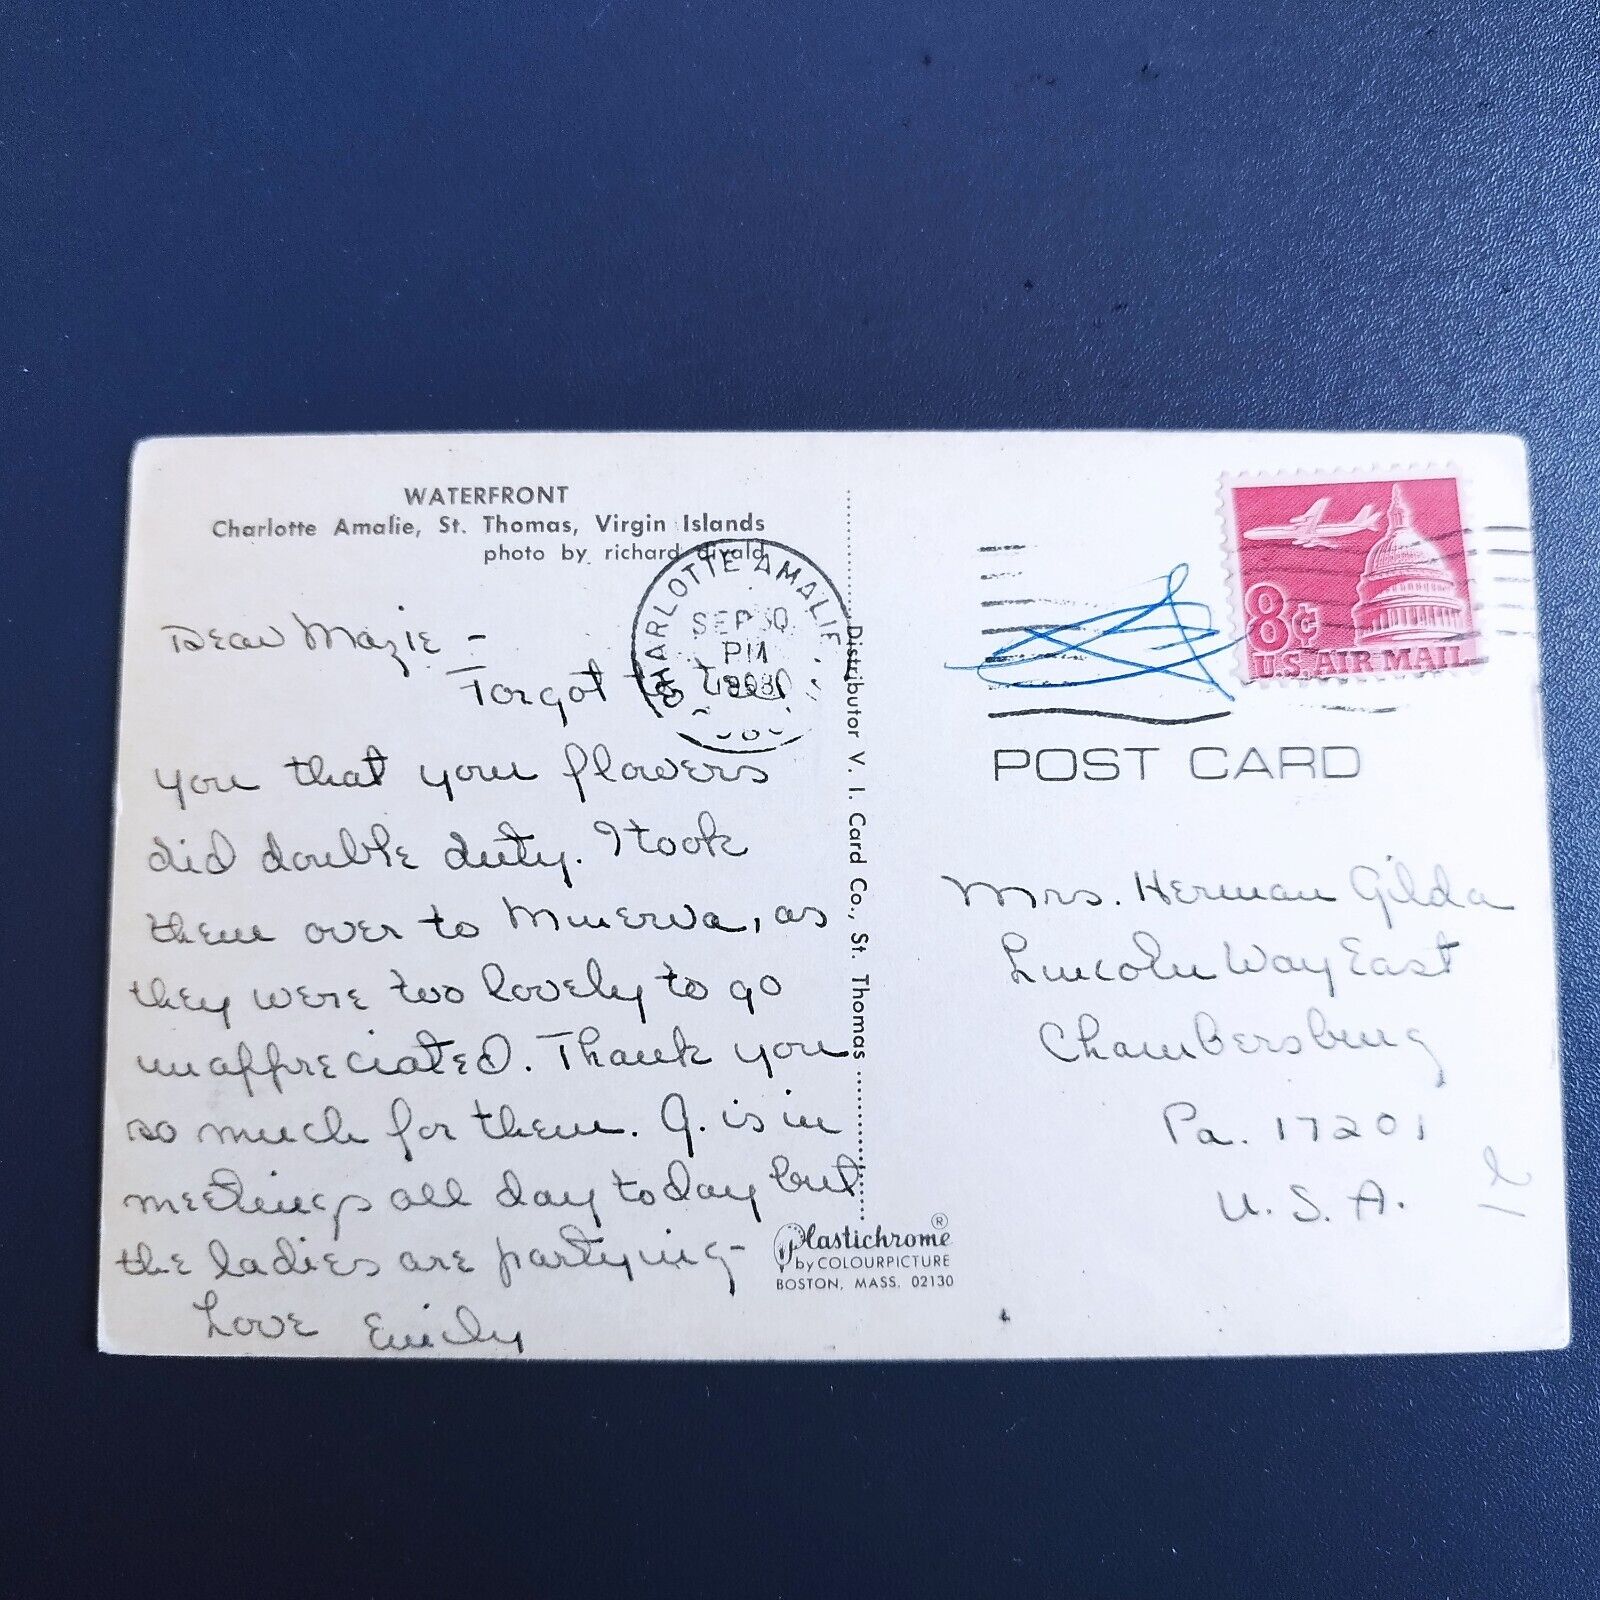 WATERFRONT
Charlotte Amalie, St. Thomas, Virgin Islands
photo by richard divald
Dear Mazie -
Forgot to tell
you that your flowers
did double duty. I took
them over to Minerva, as
they were too lovely to go
unappreciated. Thank you
so much for them. G. is in
meetings all day today but
the ladies are partying -
Love Emily
CHARLOTTE AMALIE
SEP 30
PM
Distributor V. I. Card Co., St. Thomas
Plastichrome ®
by COLOURPICTURE
BOSTON, MASS. 02130
8¢
U.S. AIR MAIL
POST CARD
Mrs. Herman Gilda
Lincoln Way East
Chambersburg
Pa. 17201
U. S. A.